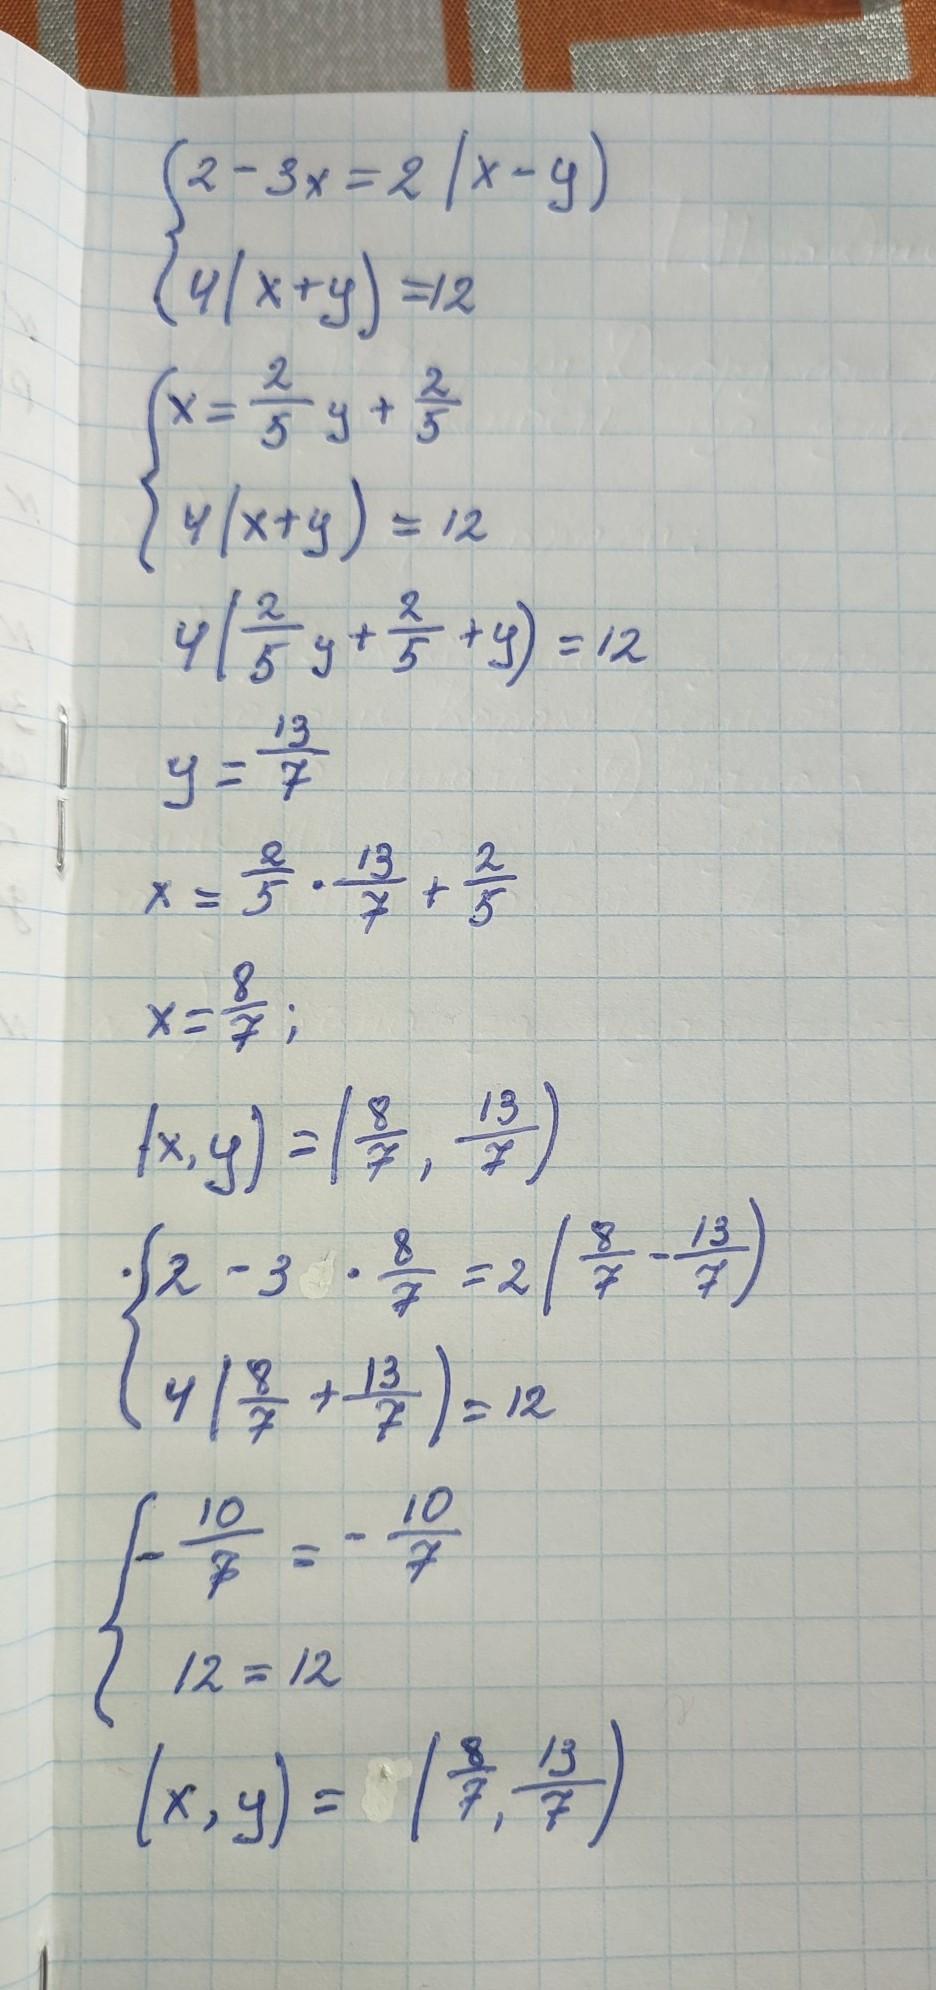 {2 - 3x = 2(x - y)
{4(x + y) = 12
{x = 2/5 y + 2/5
{4(x + y) = 12
4(2/5 y + 2/5 + y) = 12
y = 13/7
x = 2/5 · 13/7 + 2/5
x = 8/7;
(x, y) = (8/7, 13/7)
·{2 - 3 · 8/7 = 2(8/7 - 13/7)
{4(8/7 + 13/7) = 12
{- 10/7 = - 10/7
{12 = 12
(x, y) = (8/7, 13/7)